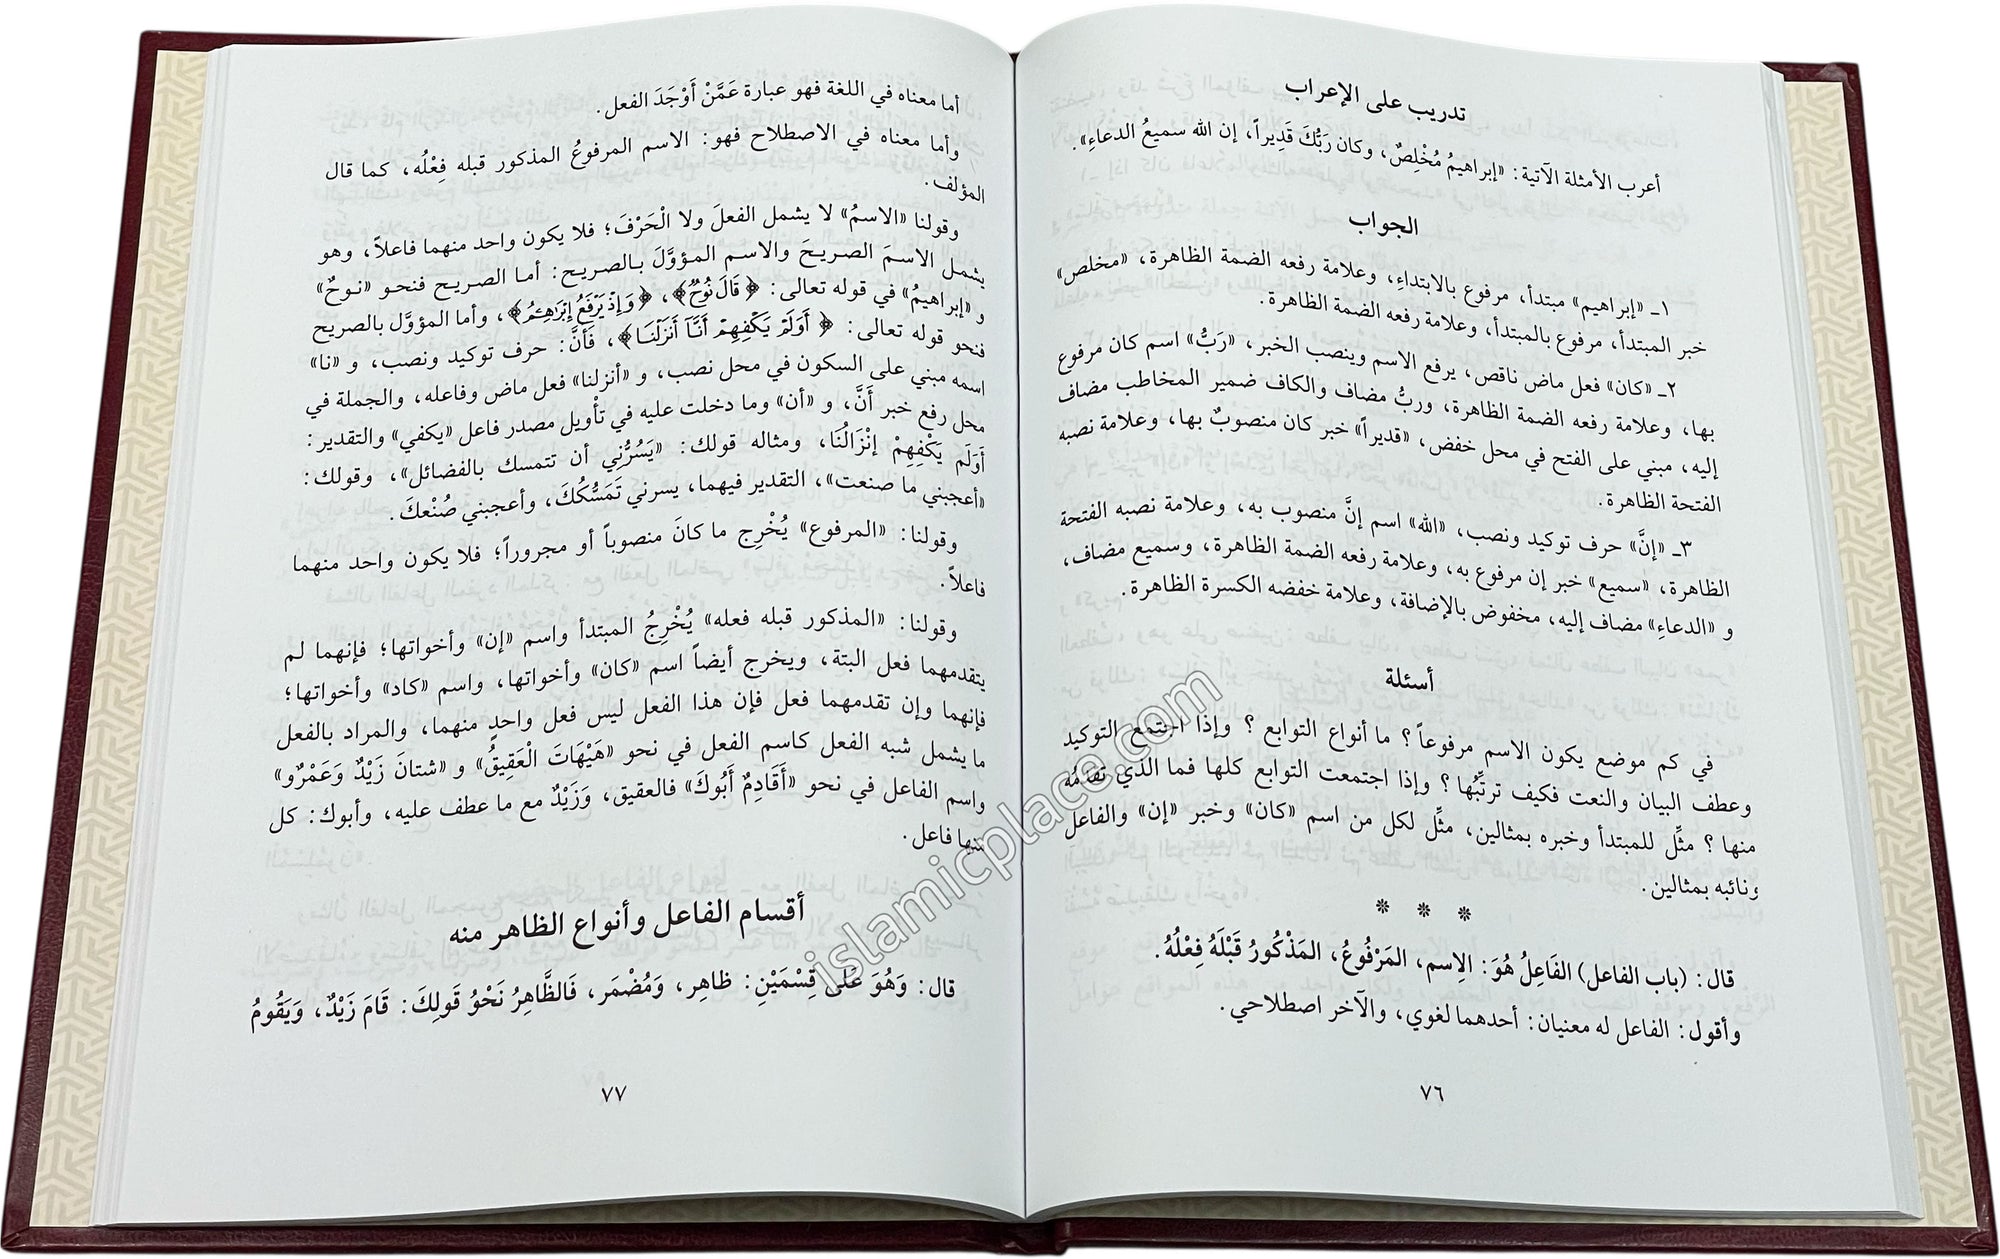 تدريب على الإعراب
أعرب الأمثلة الآتية: «إبراهيمُ مُخْلِصٌ، وكان رَبُّكَ قَدِيراً، إن الله سميعُ الدعاءِ».
الجواب
١ـ «إبراهيم» مبتدأ، مرفوع بالابتداءِ، وعلامة رفعه الضمة الظاهرة، «مخلص»
خبر المبتدأ، مرفوع بالمبتدأ، وعلامة رفعه الضمة الظاهرة.
٢ـ «كان» فعل ماض ناقص، يرفع الاسم وينصب الخبر، «رَبُّ» اسم كان مرفوع
بها، وعلامة رفعه الضمة الظاهرة، وربُّ مضاف والكاف ضمير المخاطب مضاف
إليه، مبني على الفتح في محل خفض، «قديراً» خبر كان منصوبٌ بها، وعلامة نصبه
الفتحة الظاهرة.
٣ـ «إنَّ» حرف توكيد ونصب، «الله» اسم إنَّ منصوب به، وعلامة نصبه الفتحة
الظاهرة، «سميع» خبر إن مرفوع به، وعلامة رفعه الضمة الظاهرة، وسميع مضاف،
و «الدعاءِ» مضاف إليه، مخفوض بالإضافة، وعلامة خفضه الكسرة الظاهرة.
أسئلة
في كم موضع يكون الاسم مرفوعاً؟ ما أنواع التوابع؟ وإذا اجتمع التوكيد
وعطف البيان والنعت فكيف ترتِّبُها؟ وإذا اجتمعت التوابع كلها فما الذي تقدمُه
منها؟ مثِّل للمبتدأ وخبره بمثالين، مثِّل لكل من اسم «كان» وخبر «إن» والفاعلِ
ونائبه بمثالين.
* * *
قال: (باب الفاعل) الفَاعِلُ هُوَ: الِاسم، المَرْفُوعُ، المَذْكُورُ قَبْلَهُ فِعْلُهُ.
وأقول: الفاعل له معنيان: أحدهما لغوي، والآخر اصطلاحي.
٧٦
أما معناه في اللغة فهو عبارة عَمَّنْ أَوْجَدَ الفعل.
وأما معناه في الاصطلاح فهو: الاسم المرفوعُ المذكور قبله فِعْلُه، كما قال
المؤلف.
وقولنا «الاسمُ» لا يشمل الفعلَ ولا الْحَرْفَ؛ فلا يكون واحد منهما فاعلاً، وهو
يشمل الاسمَ الصريحَ والاسم المؤوَّلَ بالصريح: أما الصريح فنحو «نوحٌ»
و «إبراهيمُ» في قوله تعالى: ﴿قَالَ نُوحٌ﴾، ﴿وَإِذْ يَرْفَعُ إِبْرَاهِيمُ﴾، وأما المؤوَّل بالصريح
فنحو قوله تعالى: ﴿أَوَلَمْ يَكْفِهِمْ أَنَّا أَنزَلْنَا﴾، فَأنَّ: حرف توكيد ونصب، و «نا»
اسمه مبني على السكون في محل نصب، و «أنزلنا» فعل ماض وفاعله، والجملة في
محل رفع خبر أَنَّ، و «أن» وما دخلت عليه في تأْويل مصدر فاعل «يكفي» والتقدير:
أَوَلَم يَكْفِهِمْ إِنْزَالُنَا، ومثاله قولك: «يَسُرُّنِي أن تتمسك بالفضائل»، وقولك:
«أعجبني ما صنعت»، التقدير فيهما، يسرني تَمَسُّكُكَ، وأعجبني صُنْعكَ.
وقولنا: «المرفوع» يُخْرِج ما كانَ منصوباً أو مجروراً؛ فلا يكون واحد منهما
فاعلاً.
وقولنا: «المذكور قبله فعله» يُخْرِجُ المبتدأ واسم «إن» وأخواتها؛ فإنهما لم
يتقدمهما فعل البتة، ويخرج أيضاً اسم «كان» وأخواتها، واسم «كاد» وأخواتها؛
فإنهما وإن تقدمهما فعل فإن هذا الفعل ليس فعل واحدٍ منهما، والمراد بالفعل
ما يشمل شبه الفعل كاسم الفعل في نحو «هَيْهَاتَ الْعَقِيقُ» و «شتانَ زَيْدٌ وَعَمْرٌو»
واسم الفاعل في نحو «أَقَادِمٌ أَبُوكَ» فالعقيق، وَزَيْدٌ مع ما عطف عليه، وأبوك: كل
منها فاعل.
أقسام الفاعل وأنواع الظاهر منه
قال: وَهُوَ عَلَى قِسْمَيْنِ: ظاهِر، وَمُضْمَر، فَالظَّاهِرُ نَحْوُ قَولِكَ: قَامَ زَيْدٌ، وَيَقُومُ
٧٧
islamicplace.com